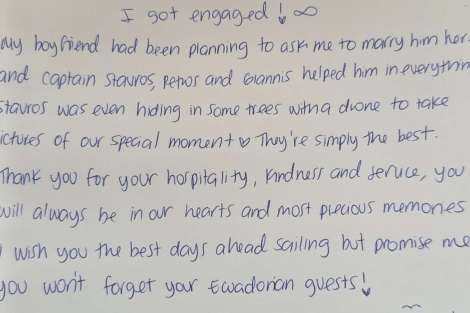 I got engaged! ∞
My boyfriend had been planning to ask me to marry him her
and captain Stavros, Petros and Giannis helped him in everythin
Stavros was even hiding in some trees with a drone to take
ictures of our special moment ♡ They're simply the best.
Thank you for your hospitality, kindness and service, you
will always be in our hearts and most precious memories
I wish you the best days ahead sailing but promise me
you won't forget your Ecuadorian guests!